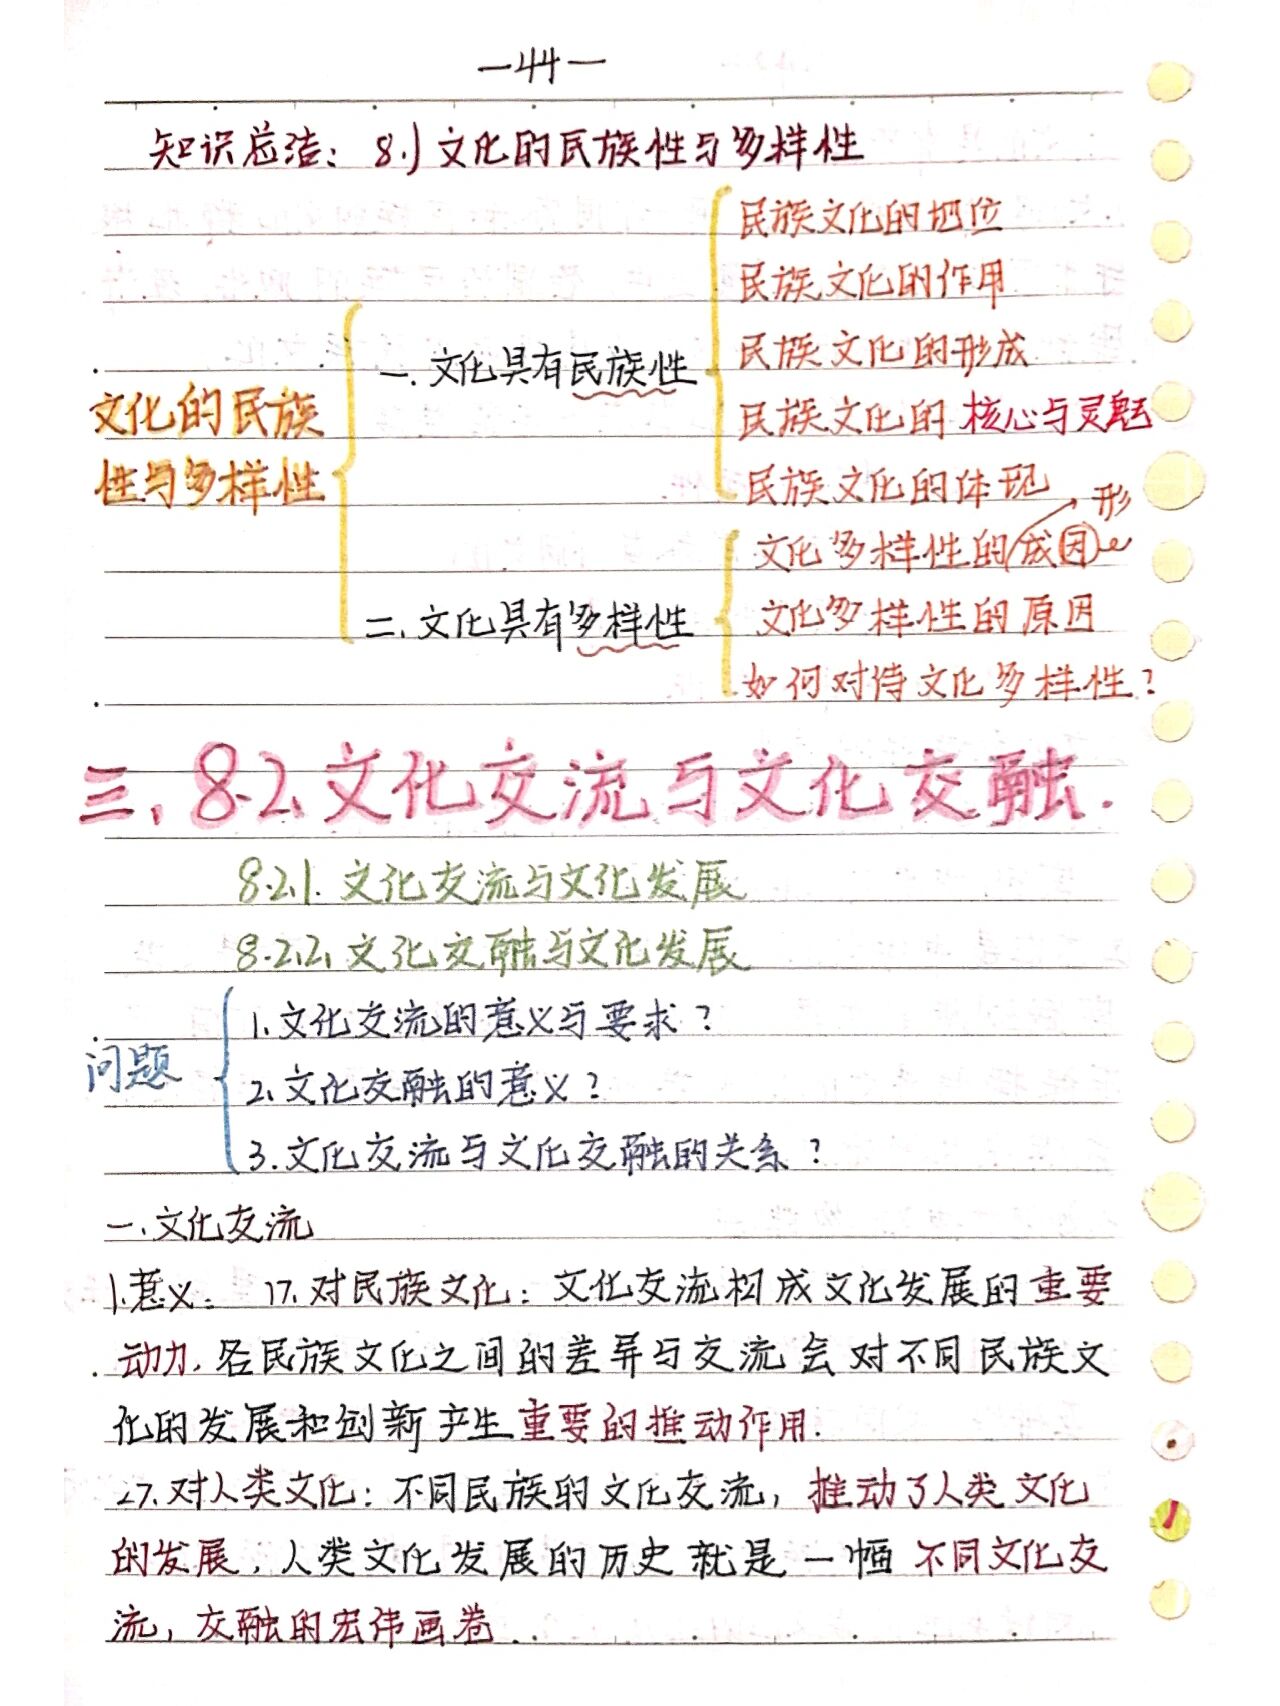 —44—
知识总结：8.1 文化的民族性与多样性
民族文化的地位
民族文化的作用
民族文化的形成
一.文化具有民族性
文化的民族
民族文化的核心与灵魂
性与多样性
民族文化的体现
形
文化多样性的成因
二、文化具有多样性
文化多样性的原因
如何对待文化多样性？
三、8.2、文化交流与文化交融.
8.2.1.文化交流与文化发展
8.2.2、文化交融与文化发展
1、文化交流的意义与要求？
问题
2、文化交融的意义？
3.文化交流与文化交融的关系？
一.文化交流
1.意义：17.对民族文化：文化交流构成文化发展的重要
动力，各民族文化之间的差异与交流会对不同民族文
化的发展和创新产生重要的推动作用.
27.对人类文化：不同民族的文化交流，推动了人类文化
的发展，人类文化发展的历史就是一幅不同文化交
流，交融的宏伟画卷.